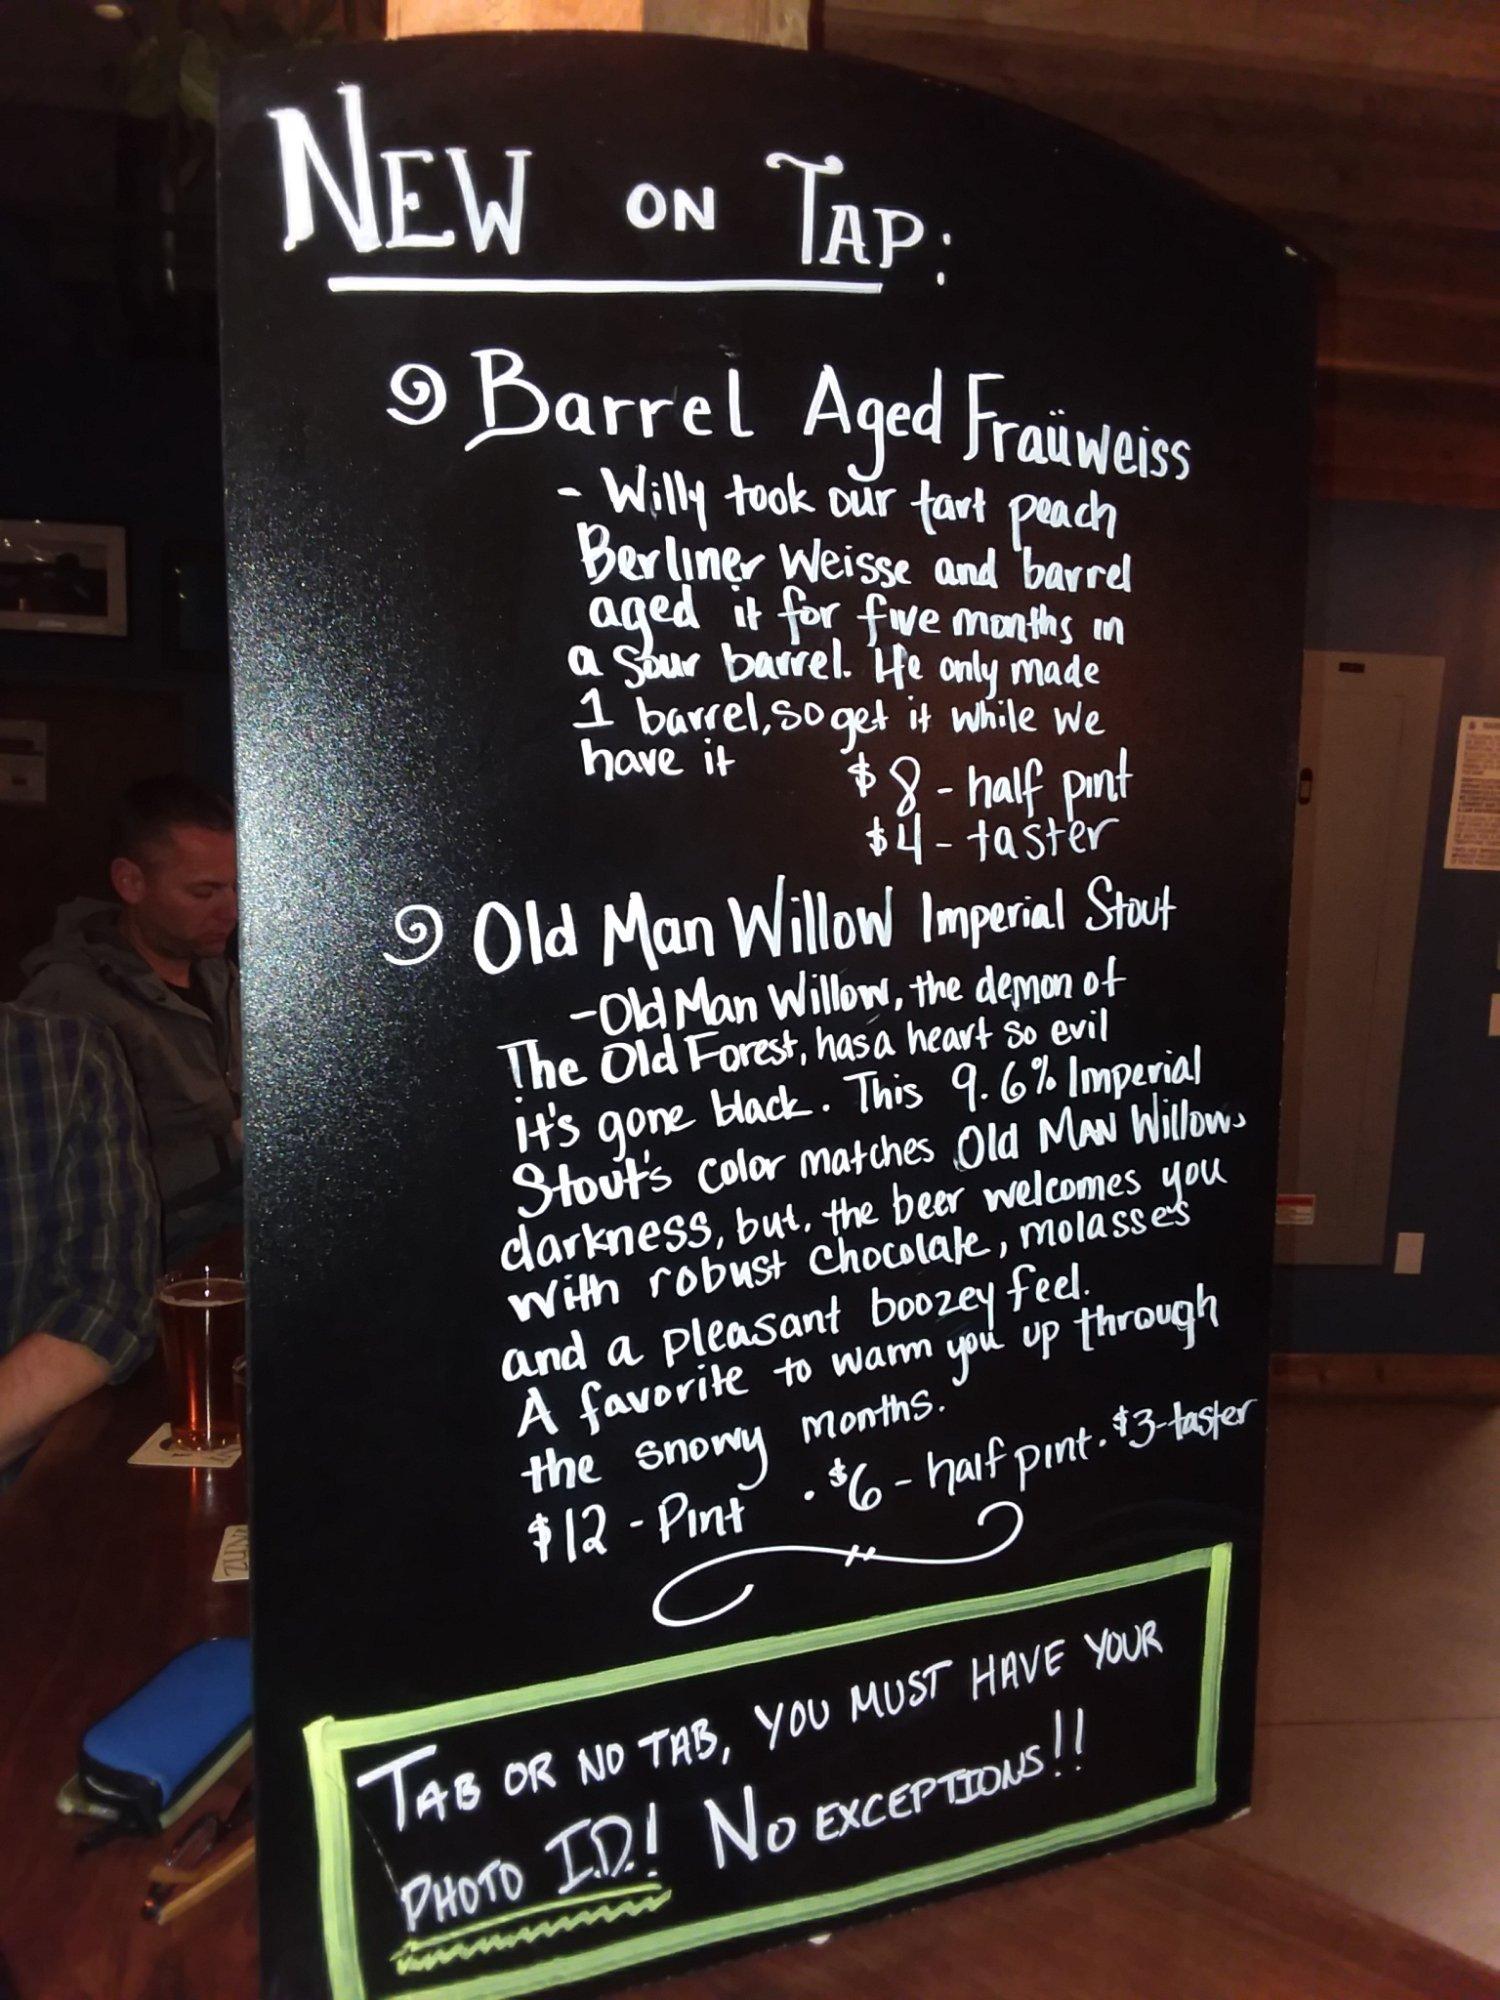 NEW ON TAP:
Barrel Aged Fraüweiss
- Willy took our tart peach
Berliner Weisse and barrel
aged it for five months in
a sour barrel. He only made
1 barrel, so get it while we
have it
$8 - half pint
$4 - taster
Old Man Willow Imperial Stout
- Old Man Willow, the demon of
The Old Forest, has a heart so evil
it's gone black. This 9.6% Imperial
Stout's color matches Old MAN Willows
darkness, but, the beer welcomes you
with robust chocolate, molasses
and a pleasant boozey feel.
A favorite to warm you up through
the snowy months.
$12 - Pint · $6 - half pint · $3-taster
TAB OR NO TAB, YOU MUST HAVE YOUR
PHOTO I.D.! NO EXCEPTIONS!!